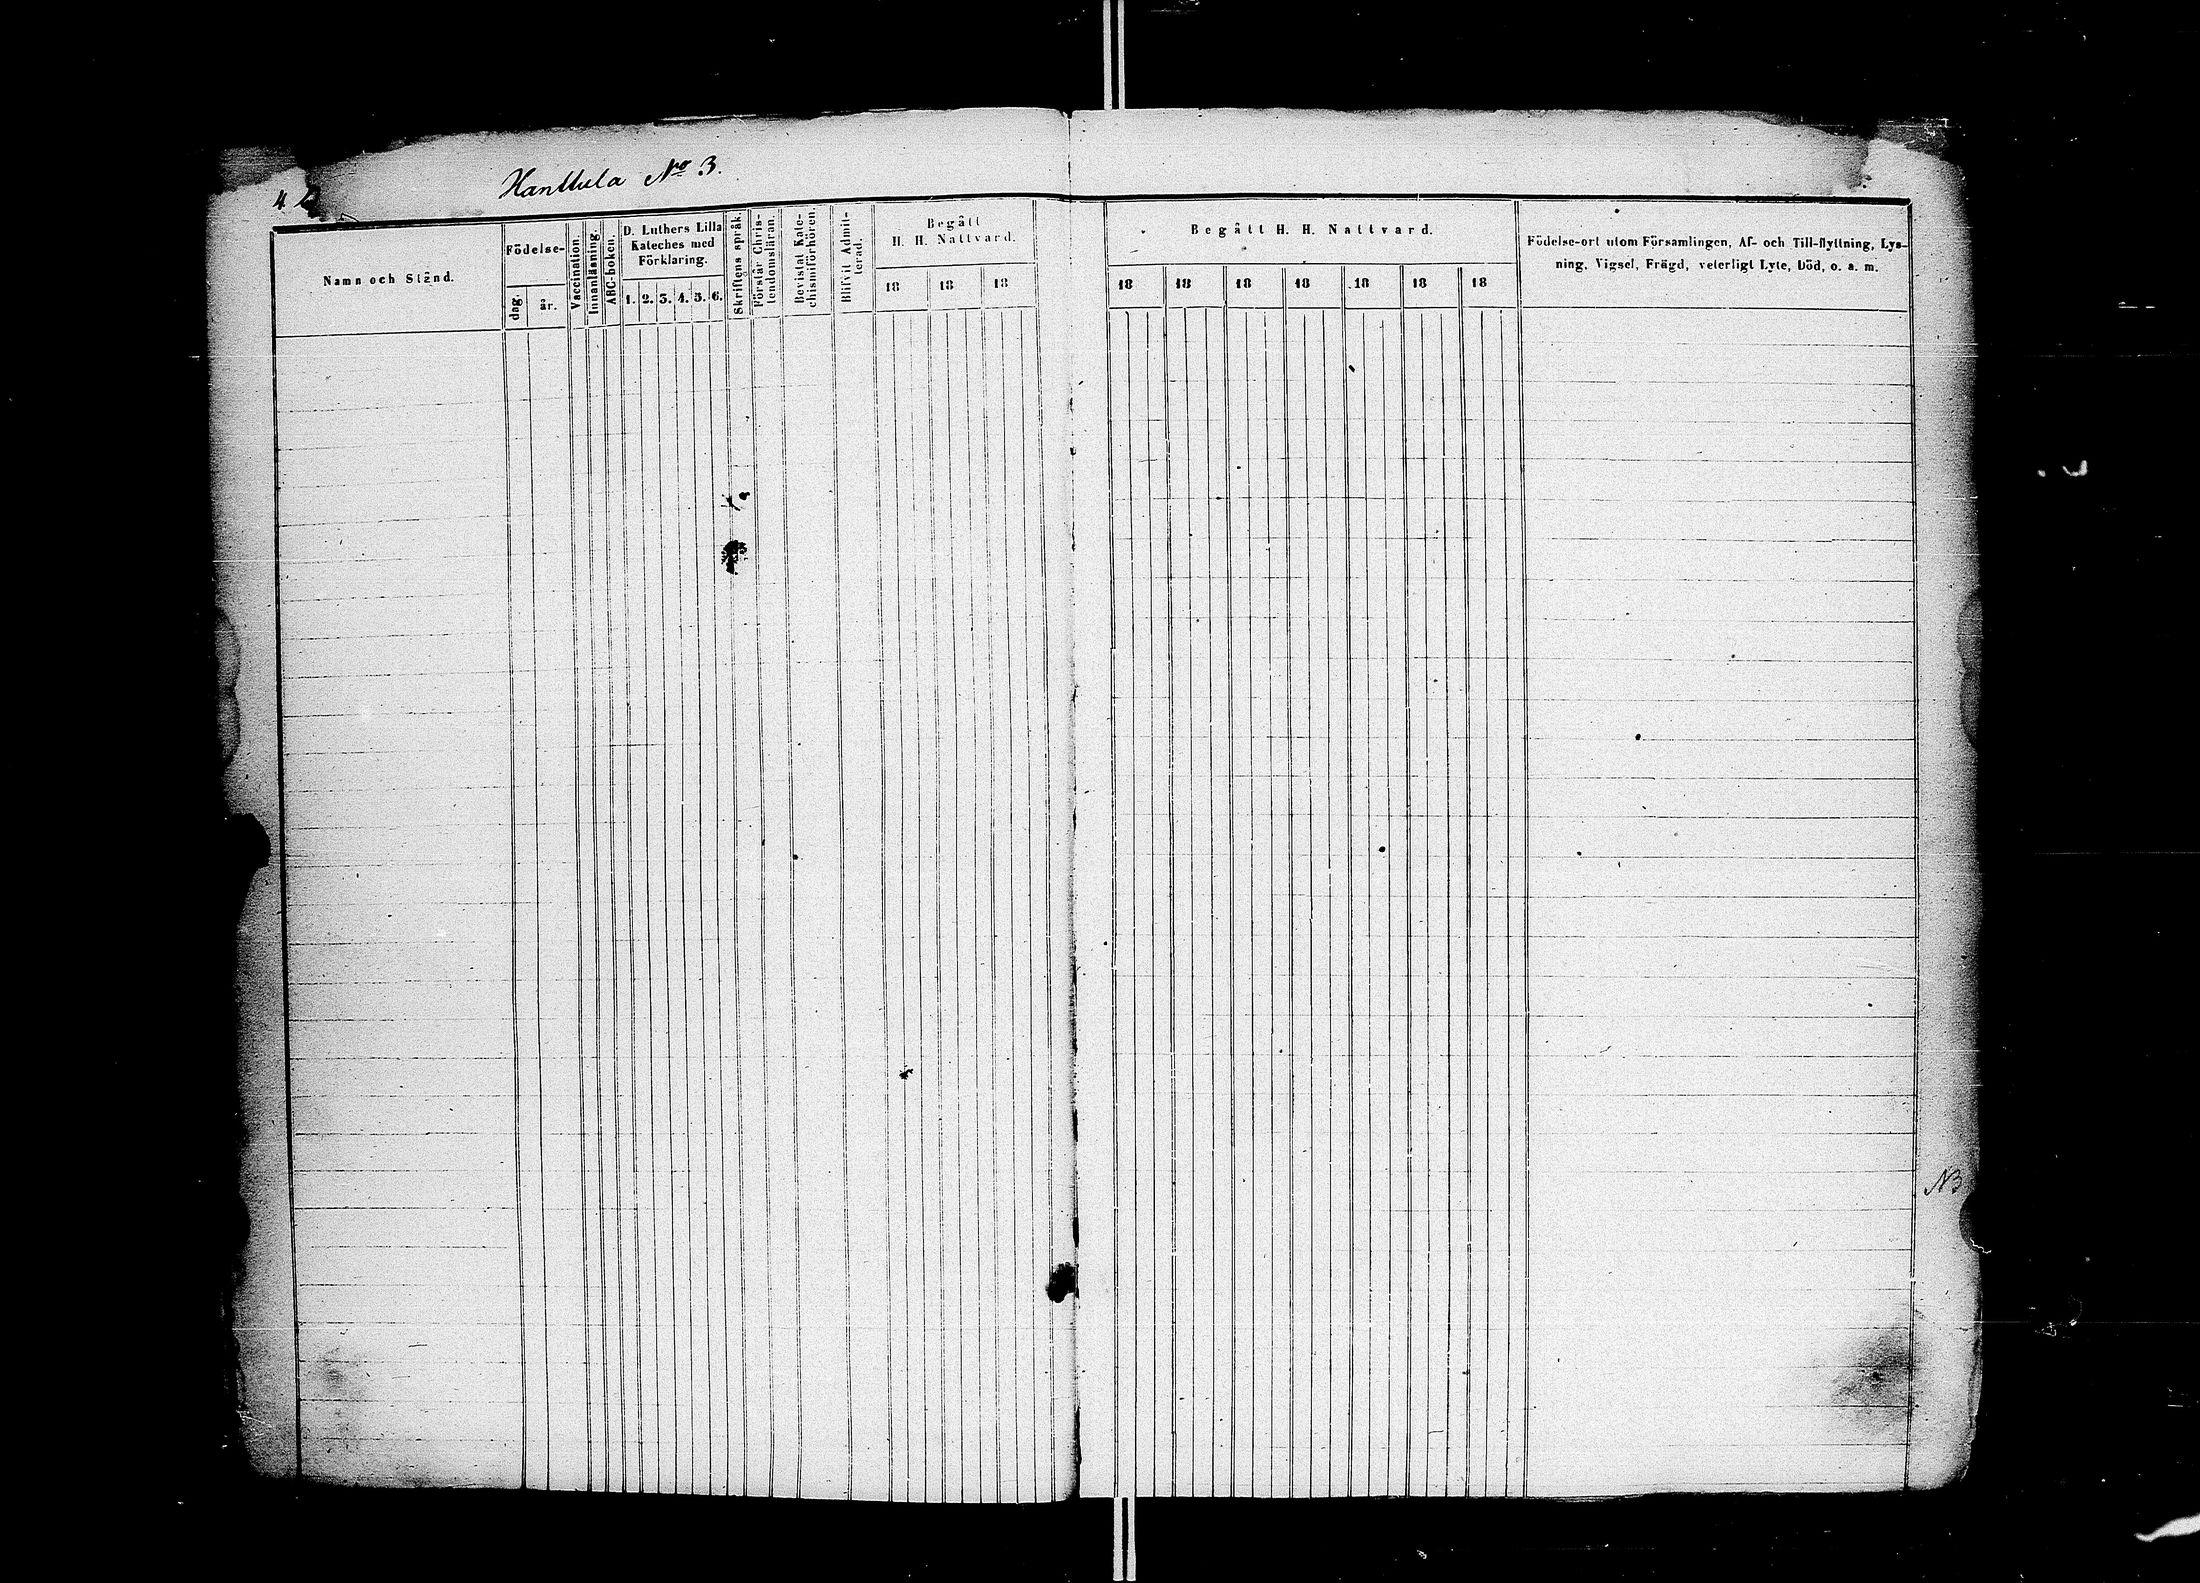 Hanttula No 3.
Namn och Stånd.
Födelse-
dag.
år.
Vaccination.
Innanläsning.
ABC-boken.
D. Luthers Lilla
Kateches med
Förklaring.
1. 2. 3. 4. 5. 6.
Skriftens språk.
Förstår Chris-
tendomsläran.
Bevistat Kate-
chismiförhören.
Blifvit Admit-
terad.
Begått
H. H. Nattvard.
18 18 18
Begått H. H. Nattvard.
18 18 18 18 18 18 18
Födelse-ort utom Församlingen, Af- och Till-flyttning, Lys-
ning, Vigsel, Frägd, veterligt Lyte, Död, o. a. m.
NB